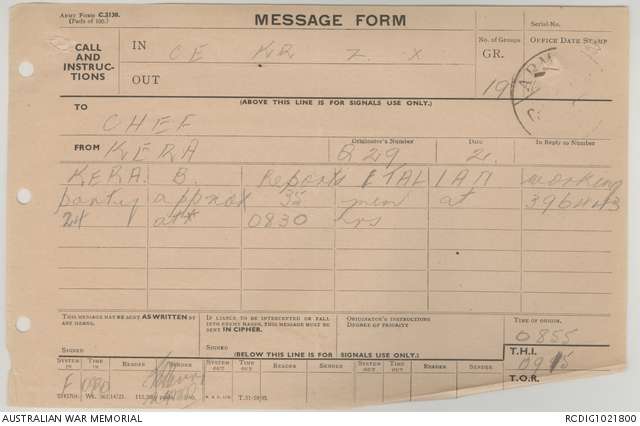 Army Form C.2138.
(Pads of 100.)
MESSAGE FORM
Serial No.
CALL AND INSTRUCTIONS
IN CE KR Z X
OUT
No. of Groups
GR.
19
OFFICE DATE STAMP
(ABOVE THIS LINE IS FOR SIGNALS USE ONLY.)
TO
CHEF
FROM KERA
Originator's Number
O 29
Date
2.
In Reply to Number
KERA B. Reports ITALIAN working
party approx 35 men at 396443
at 0830 hrs
THIS MESSAGE MAY BE SENT AS WRITTEN BY ANY MEANS.
SIGNED
IF LIABLE TO BE INTERCEPTED OR FALL INTO ENEMY HANDS, THIS MESSAGE MUST BE SENT IN CIPHER.
SIGNED
ORIGINATOR'S INSTRUCTIONS
DEGREE OF PRIORITY
TIME OF ORIGIN.
0855
(BELOW THIS LINE IS FOR SIGNALS USE ONLY.)
T.H.I.
0915
T.O.R.
SYSTEM IN TIME IN READER SENDER SYSTEM OUT TIME OUT READER SENDER SYSTEM OUT TIME OUT READER SENDER
F
51-5818.
AUSTRALIAN WAR MEMORIAL
RCDIG1021800